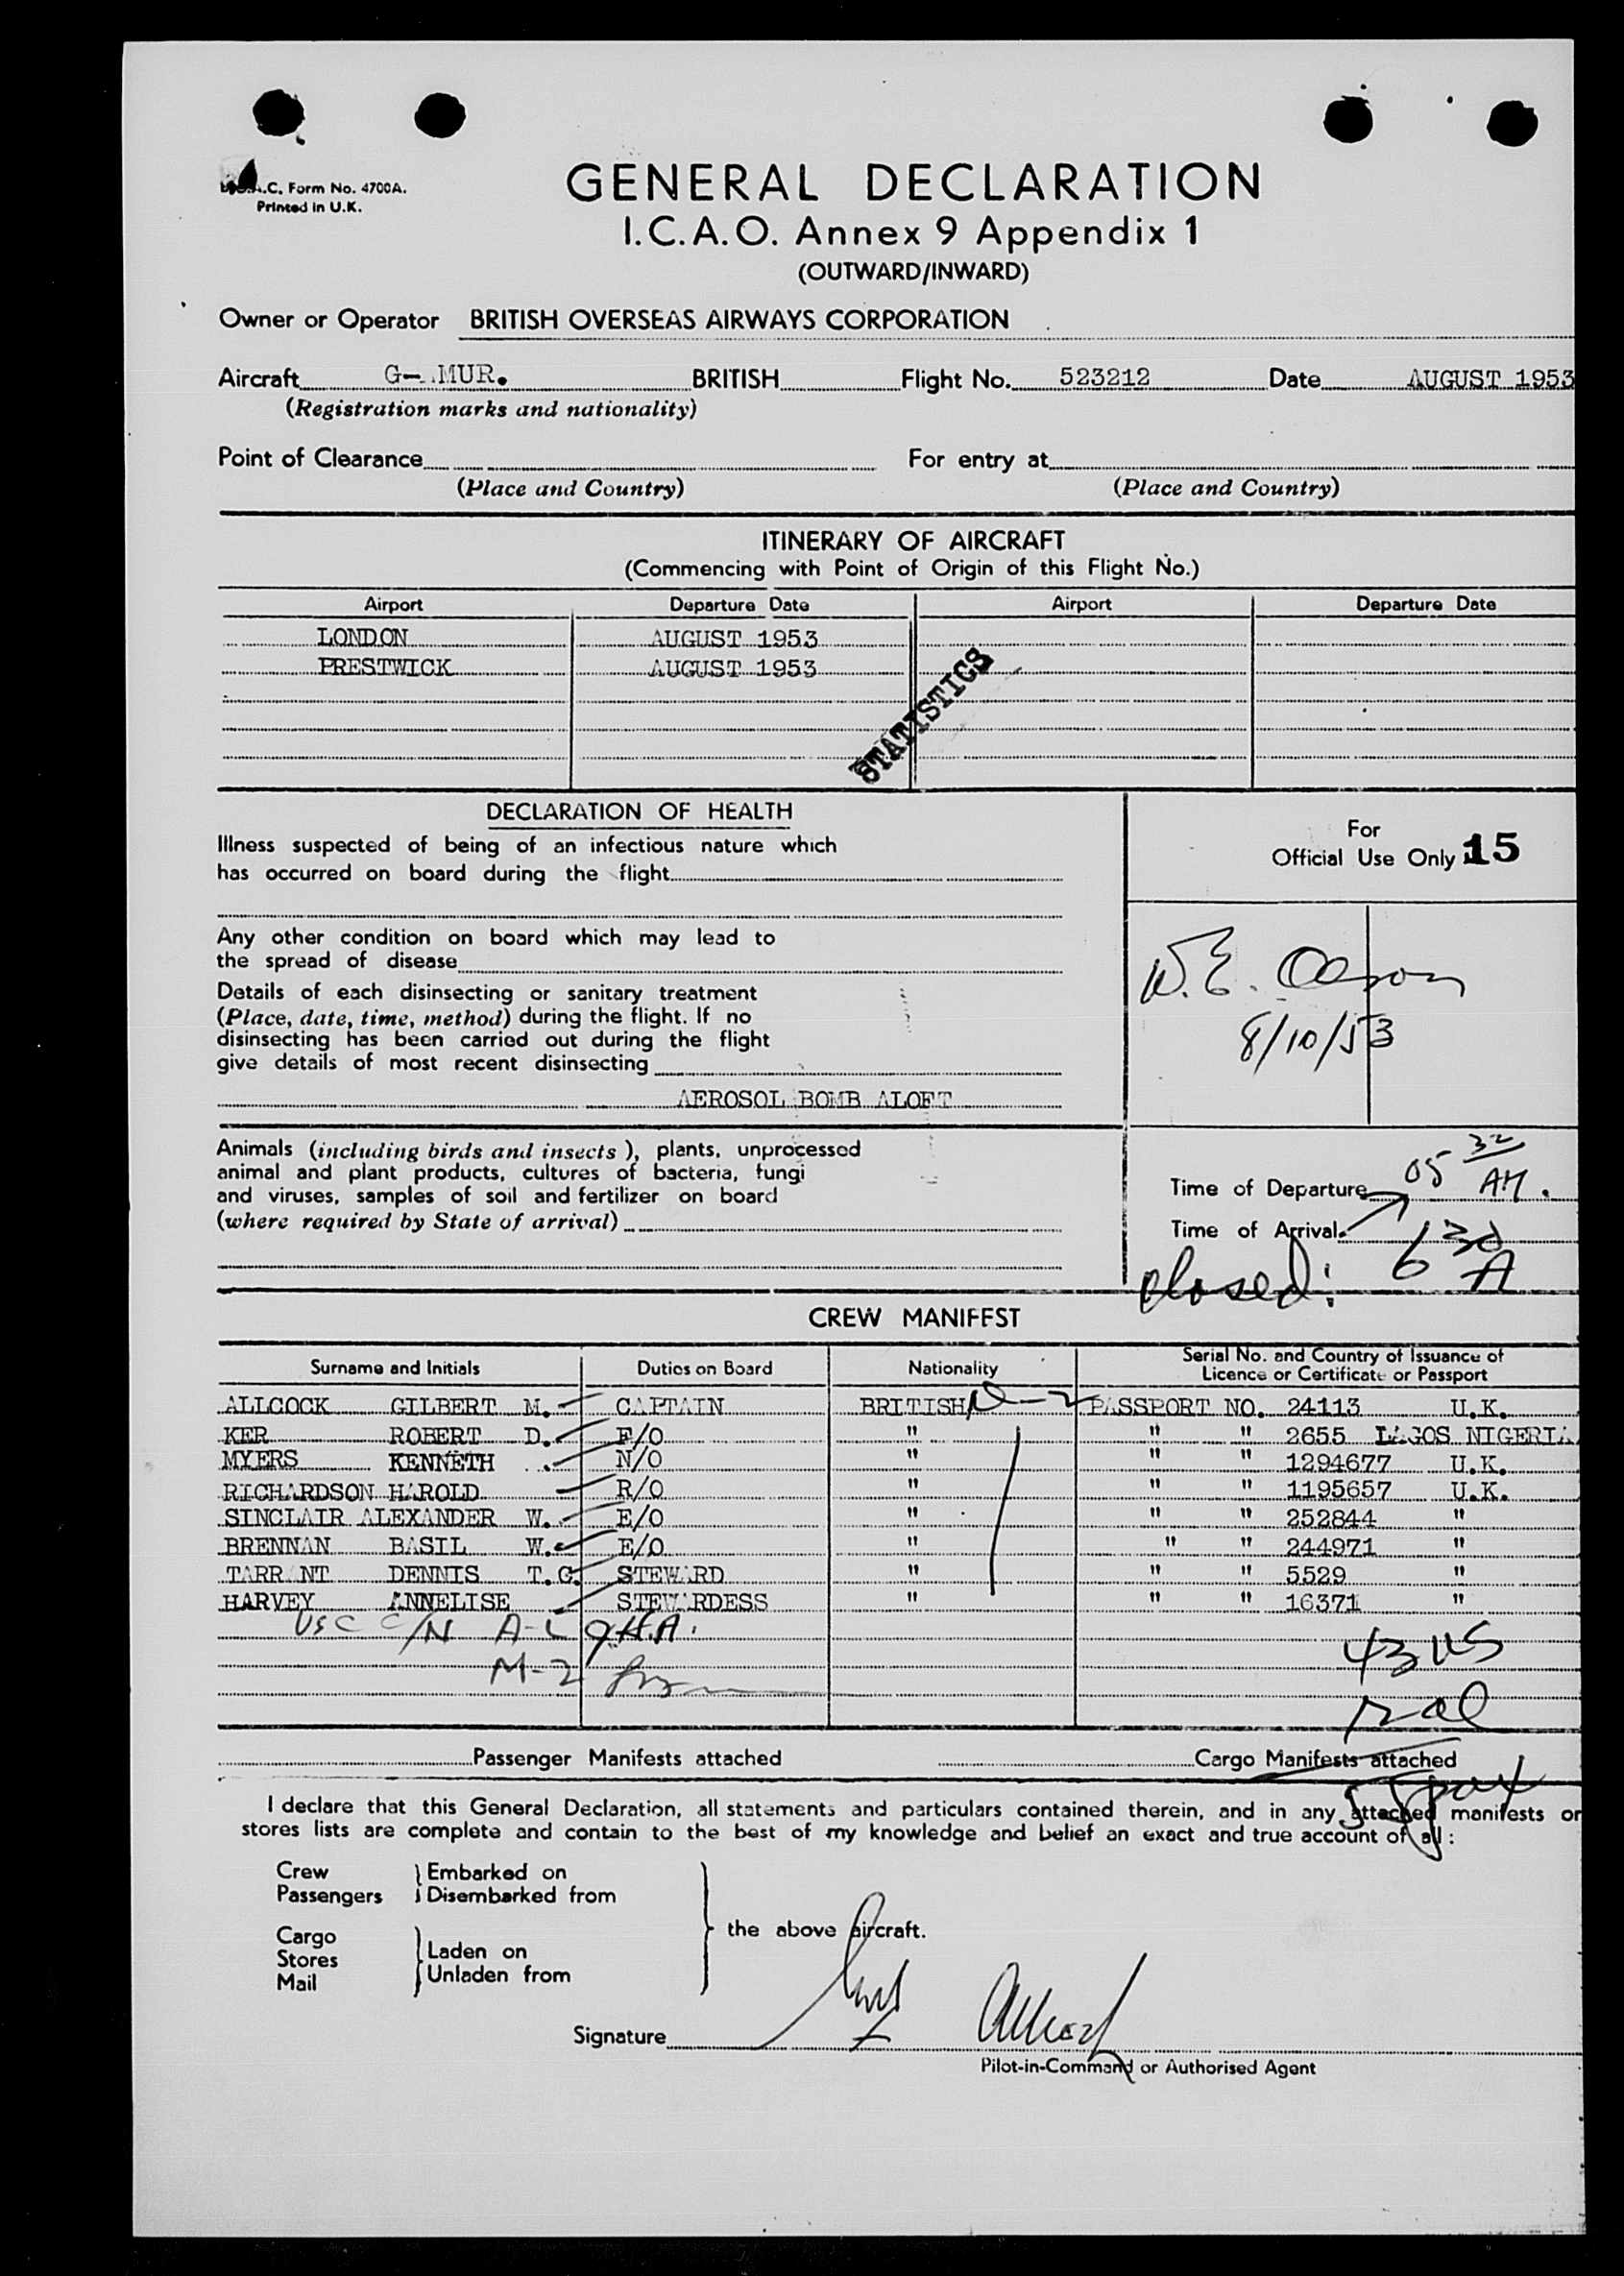 .C. Form No. 4700A.
Printed in U.K.
GENERAL DECLARATION
I.C.A.O. Annex 9 Appendix 1
(OUTWARD/INWARD)
Owner or Operator BRITISH OVERSEAS AIRWAYS CORPORATION
Aircraft G- MUR. BRITISH Flight No. 523212 Date AUGUST 1953
(Registration marks and nationality)
Point of Clearance For entry at
(Place and Country) (Place and Country)
ITINERARY OF AIRCRAFT
(Commencing with Point of Origin of this Flight No.)
Airport Departure Date Airport Departure Date
LONDON AUGUST 1953
PRESTWICK AUGUST 1953
STATISTICS
DECLARATION OF HEALTH
Illness suspected of being of an infectious nature which
has occurred on board during the flight
Any other condition on board which may lead to
the spread of disease
Details of each disinsecting or sanitary treatment
(Place, date, time, method) during the flight. If no
disinsecting has been carried out during the flight
give details of most recent disinsecting
AEROSOL BOMB ALOFT
For
Official Use Only 15
W.E. Olson
8/10/53
Animals (including birds and insects), plants, unprocessed
animal and plant products, cultures of bacteria, fungi
and viruses, samples of soil and fertilizer on board
(where required by State of arrival)
Time of Departure 05 32 AM.
Time of Arrival
closed: 6 30 A
CREW MANIFEST
Surname and Initials Duties on Board Nationality Serial No. and Country of Issuance of
Licence or Certificate or Passport
ALLCOCK GILBERT M. CAPTAIN BRITISH PASSPORT NO. 24113 U.K.
KER ROBERT D. F/O " " " 2655 LAGOS NIGERIA
MYERS KENNETH N/O " " " 1294677 U.K.
RICHARDSON HAROLD R/O " " " 1195657 U.K.
SINCLAIR ALEXANDER W. E/O " " " 252844 "
BRENNAN BASIL W. E/O " " " 244971 "
TARR NT DENNIS T.G. STEW RD " " " 5529 "
HARVEY ANNELISE STEW RDESS " " " 16371 "
USC C/N A-L
M-2
43 US
Passenger Manifests attached Cargo Manifests attached
55 pax
I declare that this General Declaration, all statements and particulars contained therein, and in any attached manifests or
stores lists are complete and contain to the best of my knowledge and belief an exact and true account of all:
Crew Embarked on
Passengers Disembarked from
the above aircraft.
Cargo
Stores Laden on
Mail Unladen from
Signature Allcock
Pilot-in-Command or Authorised Agent